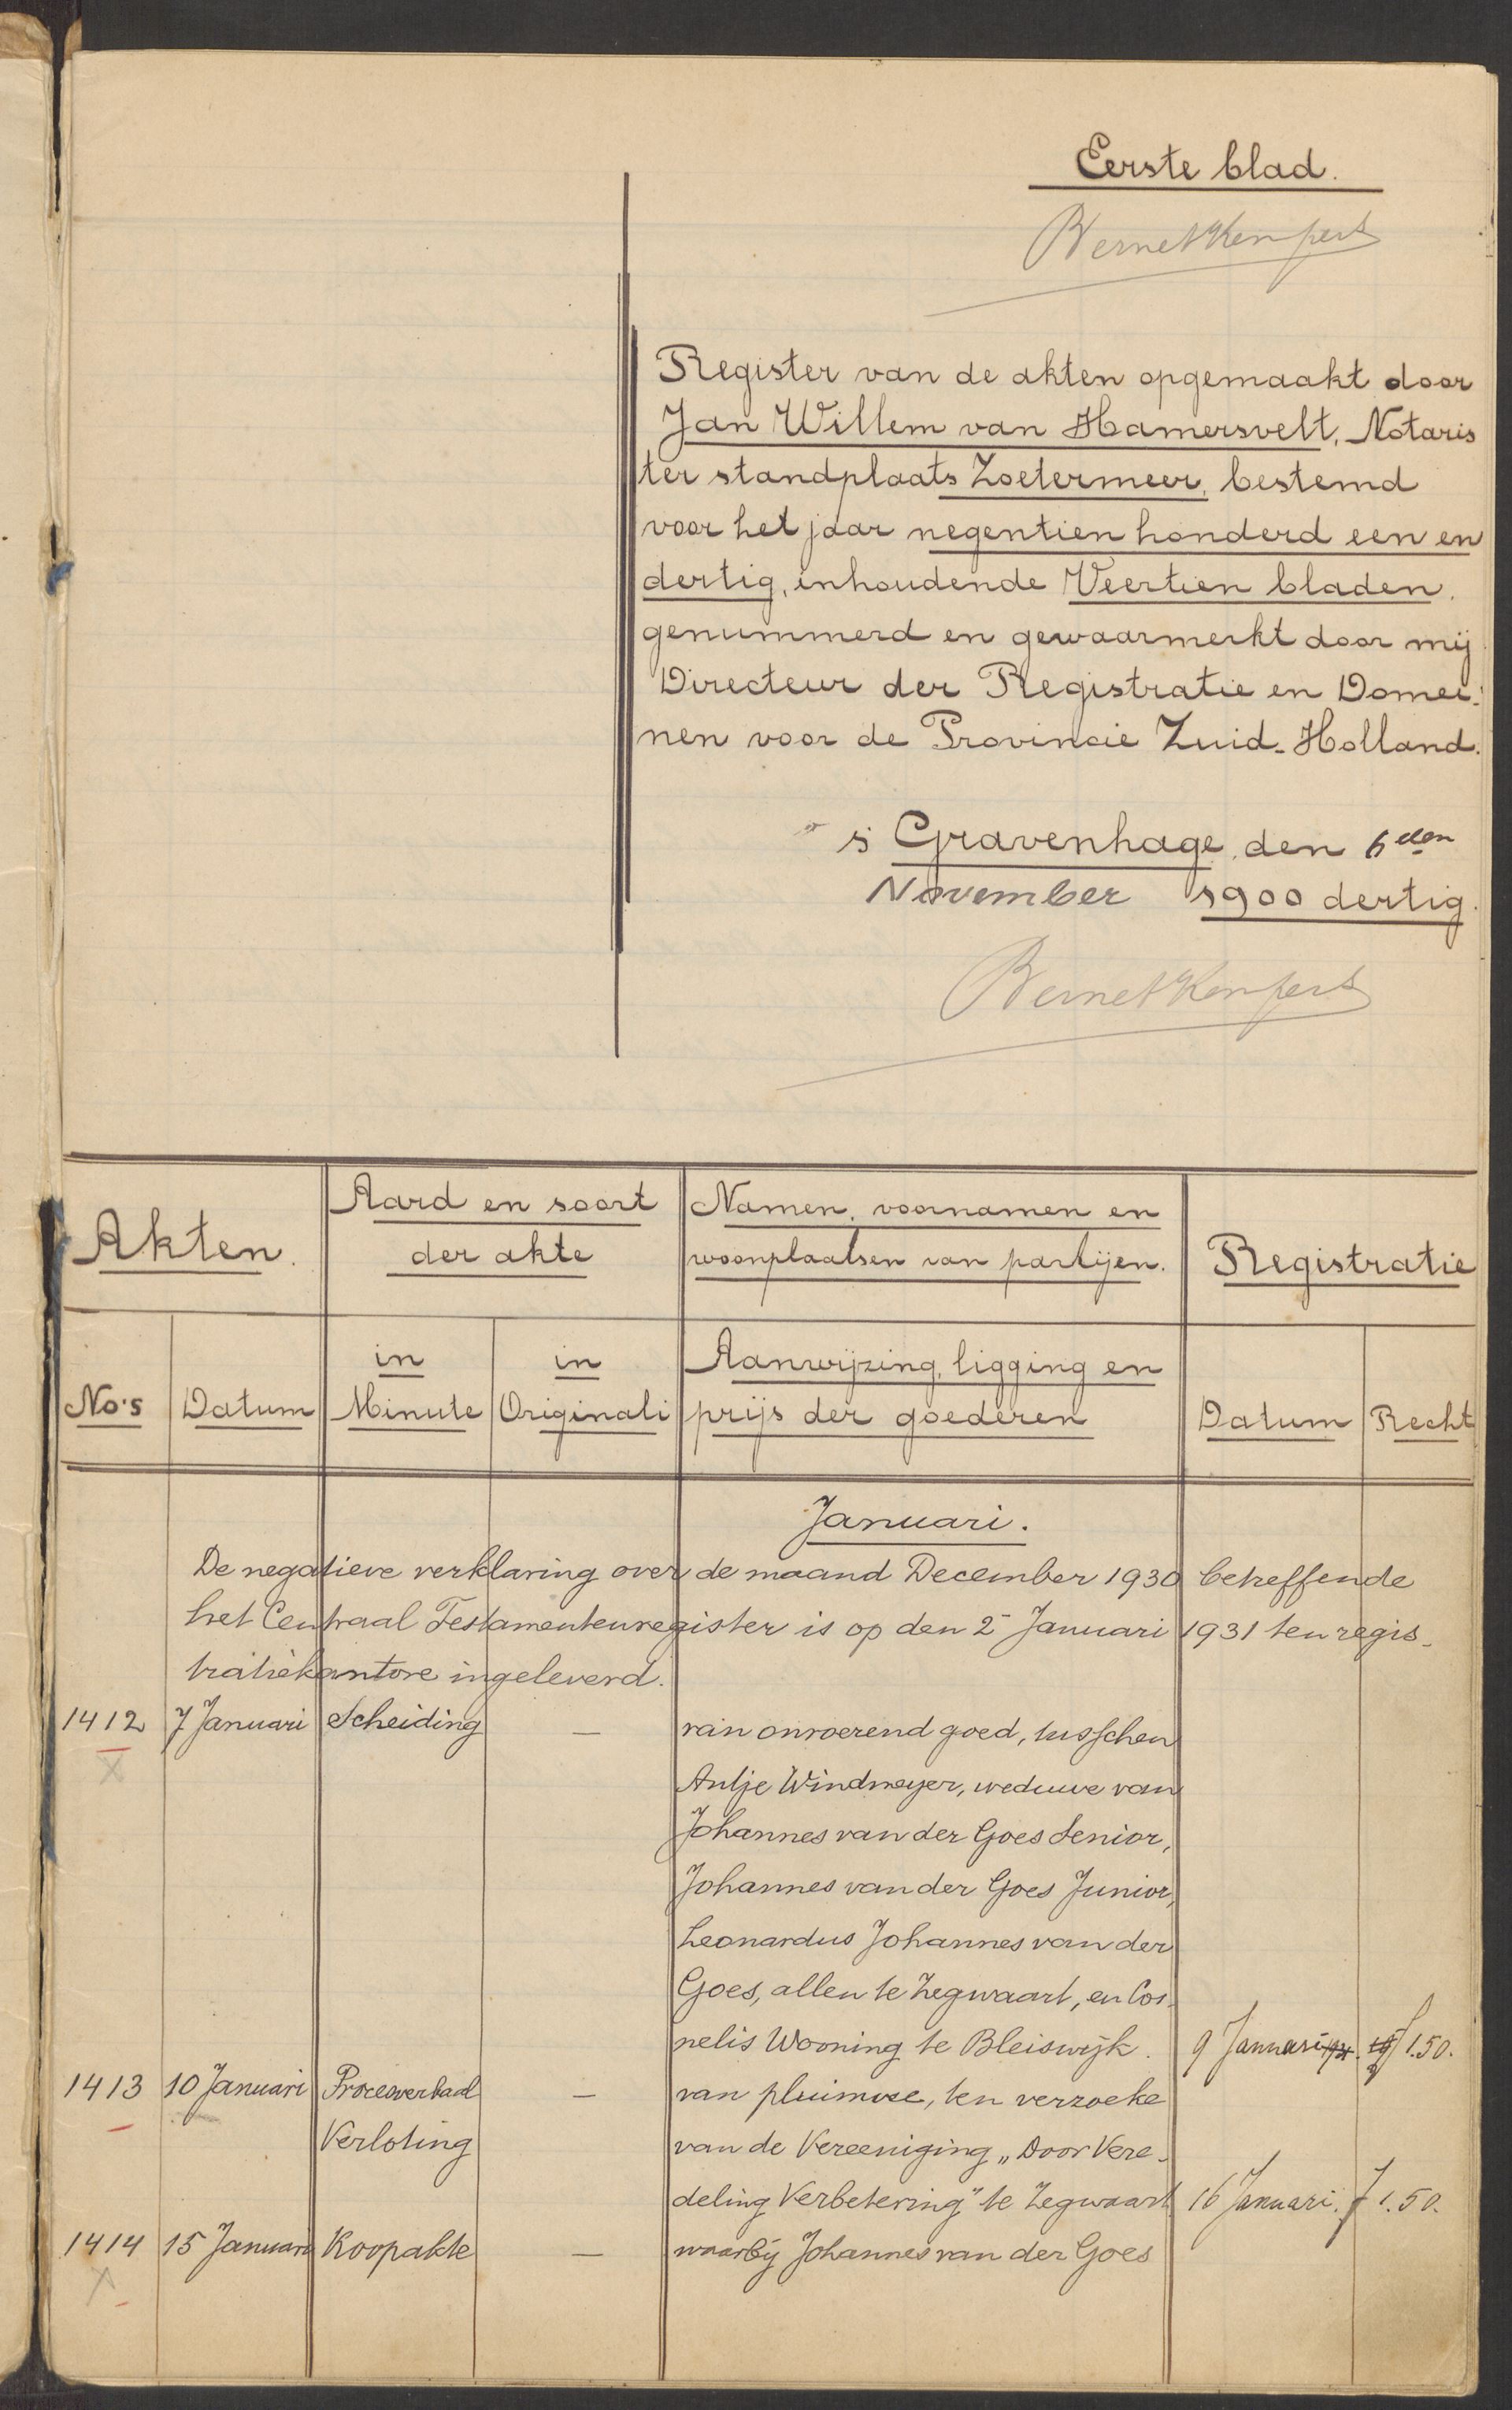 Eerste blad.
Bernet Kempers
Register van de akten opgemaakt door
Jan Willem van Hamersvelt, Notaris
ter standplaats Zoetermeer, bestemd
voor het jaar negentien honderd een en
dertig, inhoudende Veertien bladen.
genummerd en gewaarmerkt door mij
Directeur der Registratie en Domei-
nen voor de Provincie Zuid-Holland.
's Gravenhage, den 6den
November 1900 dertig.
Bernet Kempers
Akten.
Aard en soort
der akte
Namen, voornamen en
woonplaatsen van partijen.
Registratie
No's
Datum
in
Minute
in
Originali
Aanwijzing, ligging en
prijs der goederen
Datum
Recht
Januari.
De negatieve verklaring over de maand December 1930 betreffende
het Centraal Testamentenregister is op den 2 Januari 1931 ten regis-
tratiekantore ingeleverd.
1412 7 Januari Scheiding — van onroerend goed, tusschen
Antje Windmeyer, weduwe van
Johannes van der Goes Senior,
Johannes van der Goes Junior,
Leonardus Johannes van der
Goes, allen te Zegwaart, en Cor-
nelis Wooning te Bleiswijk. 9 Januari f 1.50.
1413 10 Januari Procesverbaal — van pluimvee, ten verzoeke
Verloting van de Vereeniging „Door Vere-
deling Verbetering" te Zegwaart 16 Januari. f 1.50.
1414 15 Januari Koopakte — waarbij Johannes van der Goes